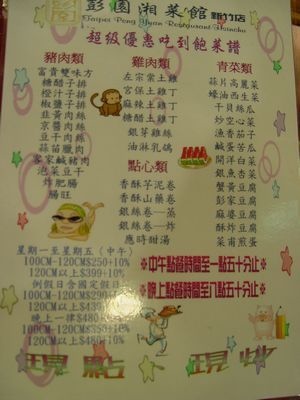 彭園湘菜館 新竹店
Taipei Peng Yuan Restaurant Hsinchu
超級優惠吃到飽菜譜
豬肉類
富貴雙味方
糖醋子排
橙汁子排
椒鹽子排
韭黃肉絲
京醬肉絲
豆干肉絲
蒜苗臘肉
客家鹹豬肉
泡菜豆干
炸肥腸
腸旺
雞肉類
左宗棠土雞
宮保土雞丁
麻辣土雞丁
糖醋雞丁
銀芽雞絲
油淋乳鴿
點心類
香酥芋泥卷
香酥山藥卷
銀絲卷—蒸
銀絲卷—炸
應時甜湯
青菜類
蒜片高麗菜
蠔油西生菜
干貝絲瓜
炒時菜
漁香茄子
鹹蛋苦瓜
開洋白菜
蟹黃豆腐
彭家豆腐
麻婆豆腐
酥炸豆腐
菜甫煎蛋
星期一至星期五（中午）
100CM-120CM$250+10%
120CM以上$399+10%
例假日含國定假日
120CM以上
晚上一律
120CM以上$480+10%
※中午點餐時間至一點五十分止※
※晚上點餐時間至八點五十分止※
現點 現炒